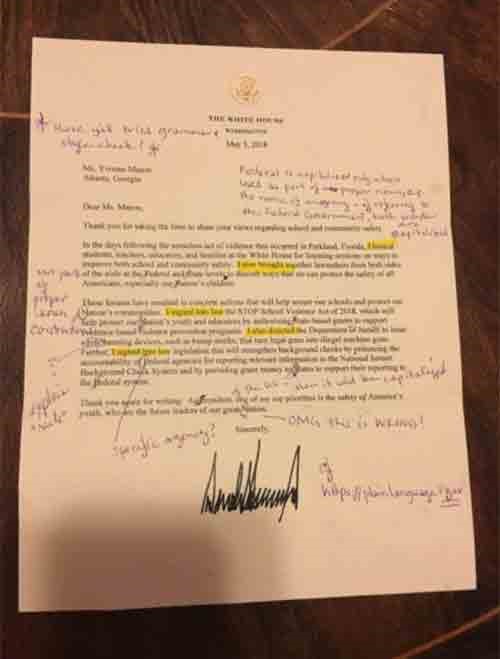 THE WHITE HOUSE
WASHINGTON
May 3, 2018
Have y'all tried grammar &
style check?
Ms. Yvonne Mason
Atlanta, Georgia
Federal is capitalized only when
used as part of a proper noun, e.g.
the name of an agency
the Federal Government, both
are
capitalized
Dear Ms. Mason,
Thank you for taking the time to share your views regarding school and community safety.
In the days following the senseless act of violence that occurred in Parkland, Florida, I hosted
students, teachers, educators, and families at the White House for listening sessions on ways to
improve both school and community safety. I also brought together lawmakers from both sides
of the aisle at the Federal and State levels to discuss ways that we can protect the safety of all
Americans, especially our Nation's children.
not part
of
proper
noun
These forums have resulted in concrete actions that will help secure our schools and protect our
Nation's communities. I signed into law the STOP School Violence Act of 2018, which will
help protect our Nation's youth and educators by authorizing State-based grants to support
evidence-based violence prevention programs. I also directed the Department of Justice to issue
a rule banning devices, such as bump stocks, that turn legal guns into illegal machine guns.
Further, I signed into law legislation that will strengthen background checks by enhancing the
accountability of Federal agencies for reporting relevant information to the National Instant
Background Check System and by providing grant money to States to support their reporting to
the Federal system.
?
explain
"rule"
of the US - then it would be capitalized
Thank you again for writing. As President, one of my top priorities is the safety of America's
youth, who are the future leaders of our great Nation.
specific agency?
OMG this is WRONG!
Sincerely,
cf
https://plainlanguage.gov